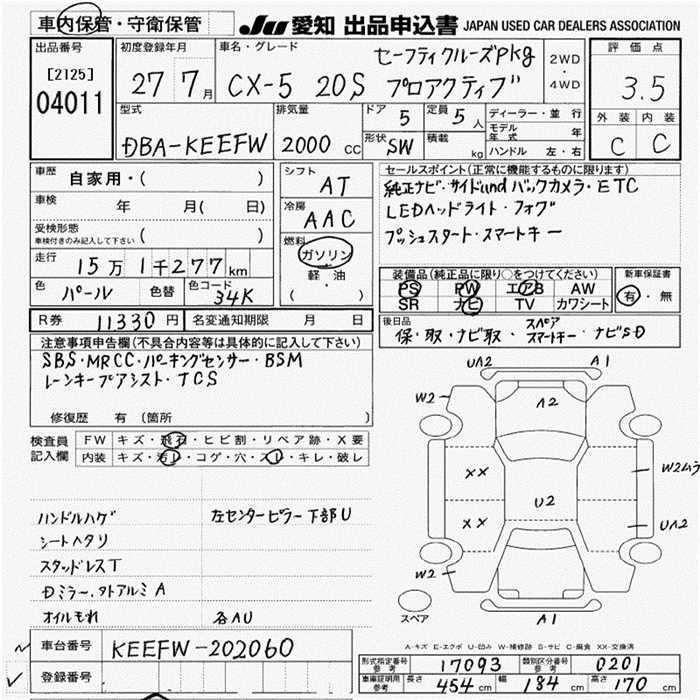 車内保管・守衛保管
JU 愛知 出品申込書 JAPAN USED CAR DEALERS ASSOCIATION
出品番号
[2125]
04011
初度登録年月
27 7月
車名・グレード
セーフティクルーズPkg
CX-5 20S プロアクティブ
2WD
・
4WD
評価点
3.5
外装 内装
C C
型式
DBA-KEEFW
排気量
2000 CC
ドア 5
定員 5人
形状 SW
積載 kg
ディーラー・並行
モデル年式 年
ハンドル 左・右
車歴 自家用・( )
車検 年 月( 日)
受検形態
車検付きのみ記入して下さい ( )
走行 15万1千277km
色 パール 色替 色コード 34K
シフト
AT
冷房
AAC
燃料
ガソリン
軽油
( )
セールスポイント(正常に機能するものに限ります)
純正ナビ・サイドundバックカメラ・ETC
LEDヘッドライト・フォグ
プッシュスタート・スマートキー
装備品(純正品に限り○をつけてください)
PS PW エアB AW
SR ナビ TV カワシート
新車保証書
有・無
R券 11330円 名変通知期限 月 日
後日品
保・取・ナビ取・スペアスマートキー・ナビSD
注意事項申告欄(不具合内容等は具体的に記入して下さい)
SBS・MRCC・パーキングセンサー・BSM
レーンキープアシスト・TCS
修復歴 有 (箇所 )
検査員記入欄
FW キズ・飛石・ヒビ割・リペア跡・X要
内装 キズ・汚レ・コゲ・穴・スレ・キレ・破レ
ハンドルハゲ 左センターピラー下部U
シートヘタリ
スタッドレスT
Dミラー、タトアルミA
オイルもれ 各AU
UA2 A1
W2 A2
XX W2ムラ
U2
XX UA2
W2
スペア A1
A-キズ E-エクボ U-凹み W-補修跡 S-サビ C-腐食 XX-交換済
車台番号 KEEFW-202060
登録番号
型式指定番号参考 17093 類別区分番号参考 0201
車庫証明用参考 長さ 454cm 幅 184cm 高さ 170cm